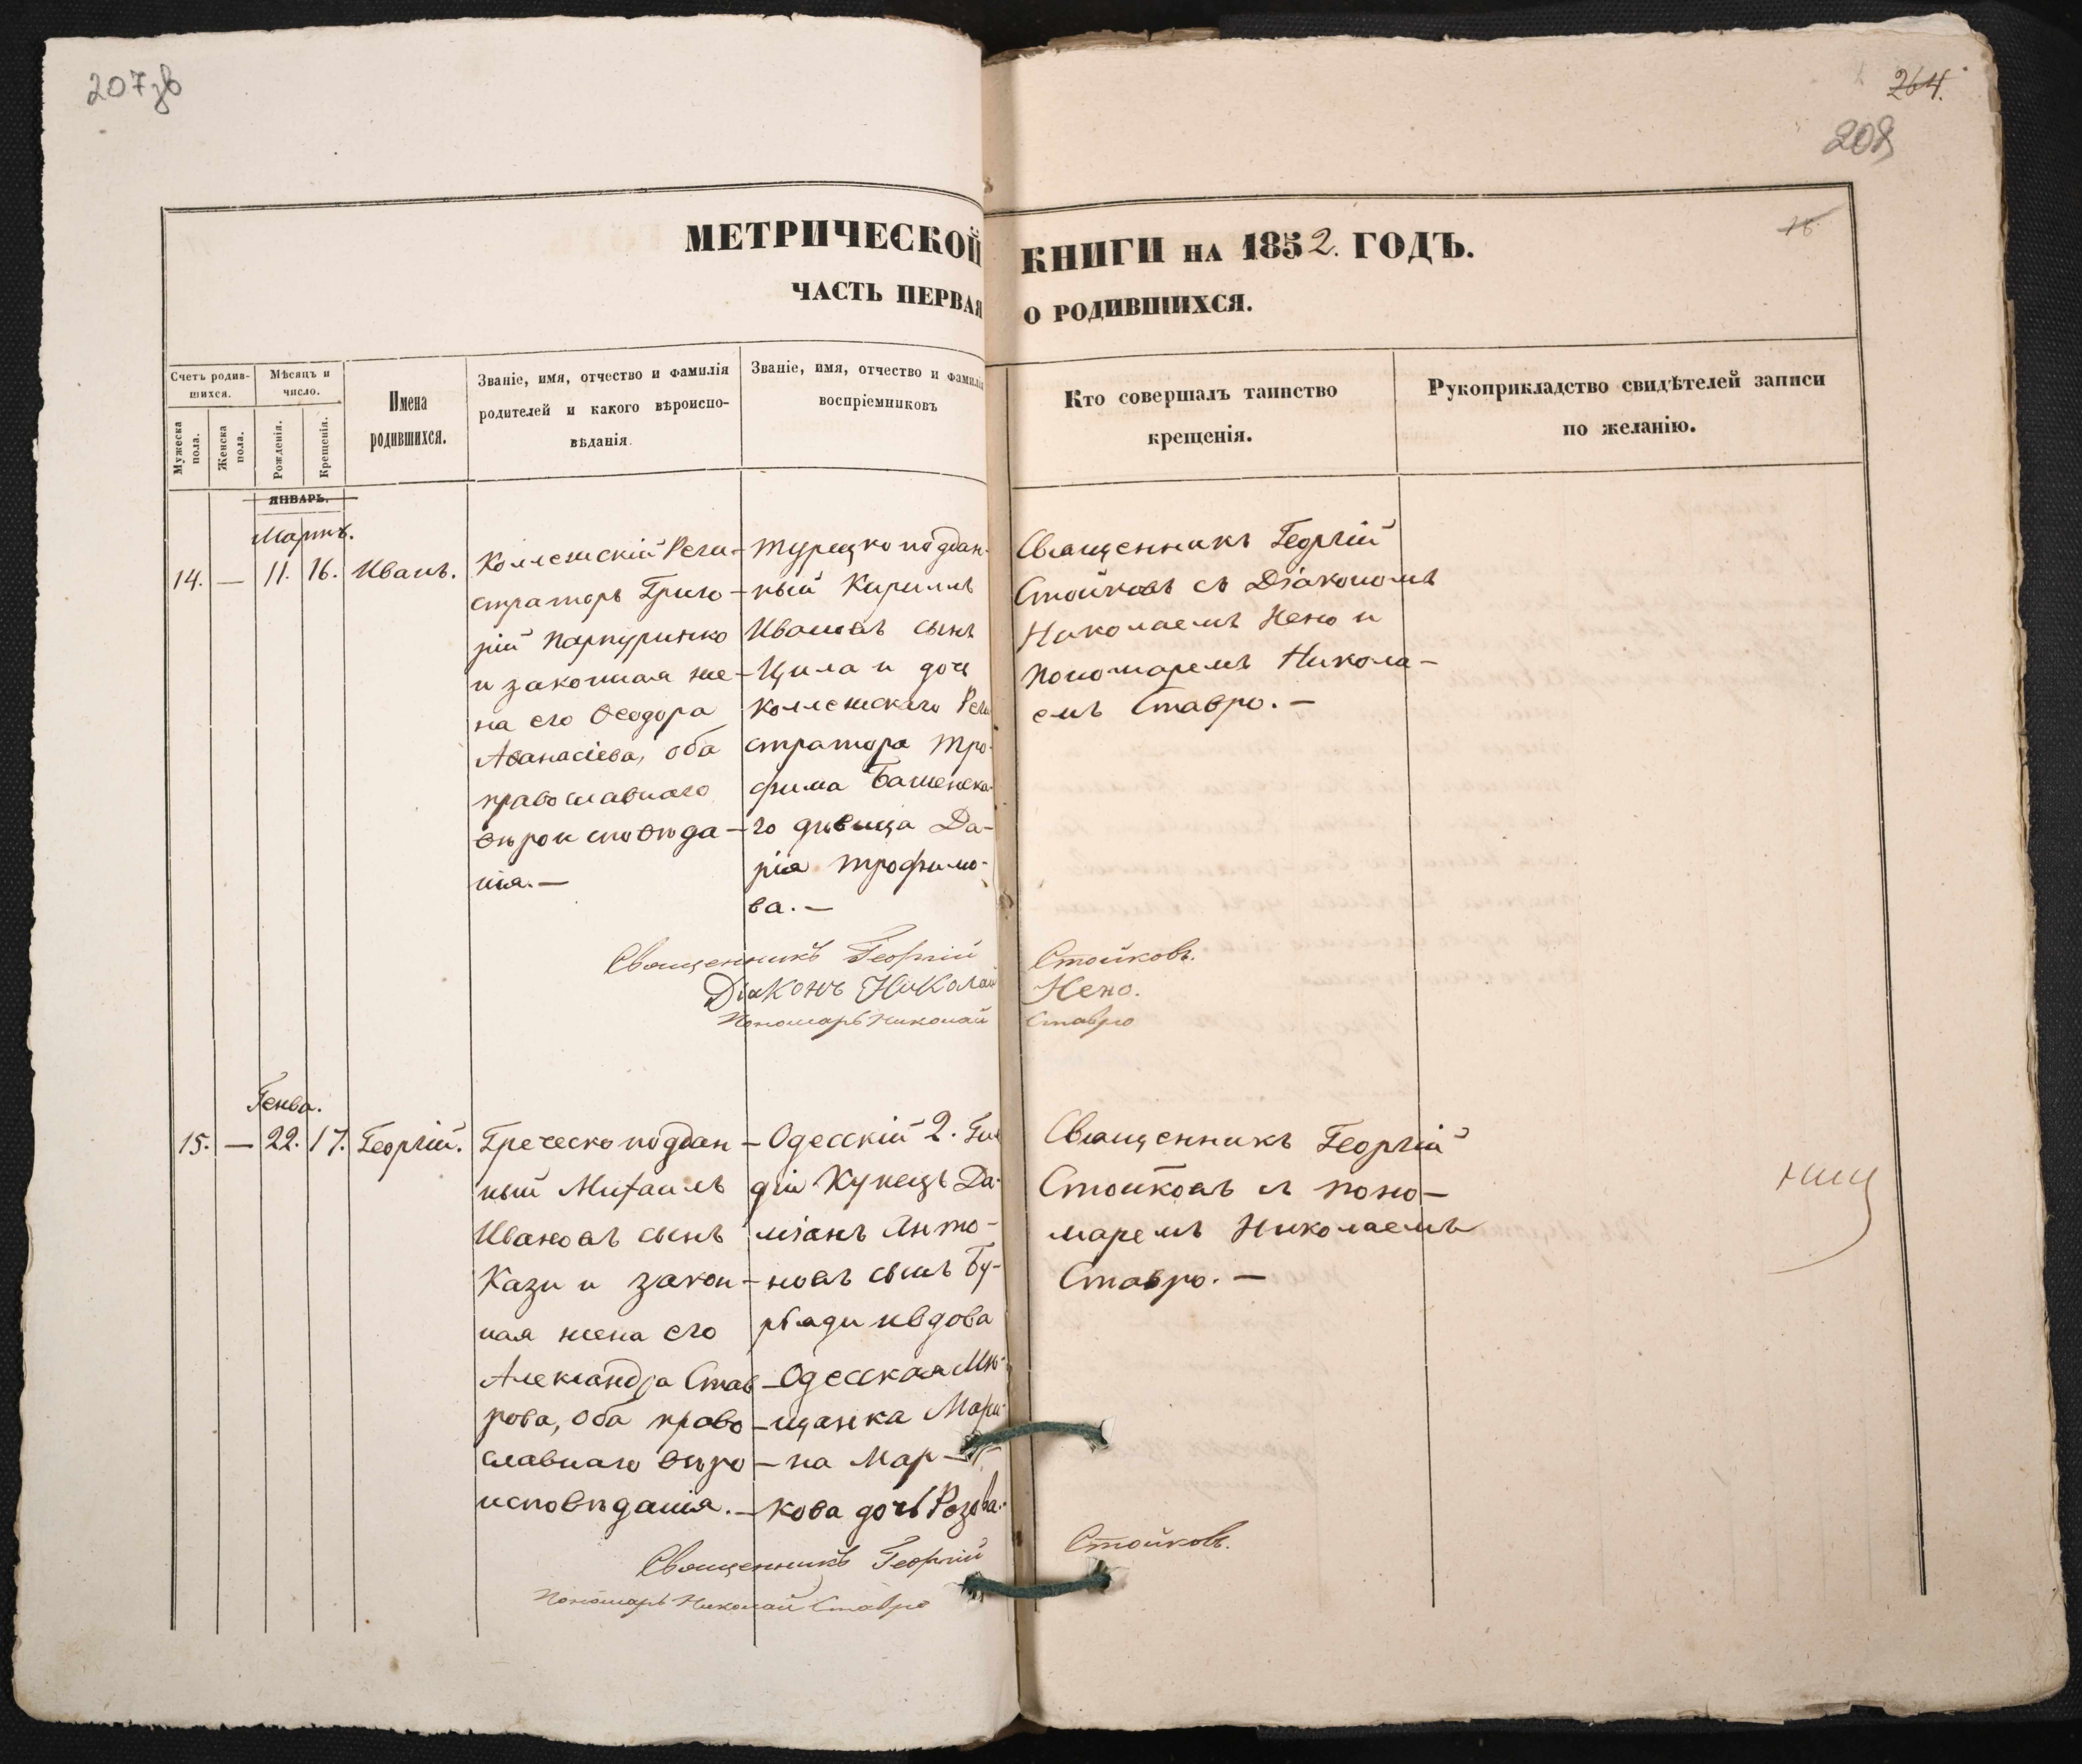 207зв
264.
208
МЕТРИЧЕСКОЙ КНИГИ НА 1852. ГОДЪ.
18
ЧАСТЬ ПЕРВАЯ О РОДИВШИХСЯ.
Счетъ родив-
шихся.
Мужеска
пола.
Женска
пола.
Мѣсяцъ и
число.
Рожденія.
Крещенія.
Имена
родившихся.
Званіе, имя, отчество и фамилія
родителей и какого вѣроиспо-
вѣданія.
Званіе, имя, отчество и фамилія
воспріемниковъ
Кто совершалъ таинство
крещенія.
Рукоприкладство свидѣтелей записи
по желанію.
ЯНВАРЬ.
Мартъ.
14. — 11. 16. Иванъ.
Коллежскій Реги-
страторъ Григо-
рій
и законная же-
на его Ѳеодора
Аѳанасіева, оба
православнаго
вѣроисповѣда-
нія. —
Турецкоподдан-
ный Кириллъ
Ивановъ сынъ
Цила и дочь
Коллежскаго Реги
стратора Тро-
фима
го дѣвица Да-
рія Трофимо-
ва. —
Священникъ Георгій
Стойковъ съ Діакономъ
Николаемъ Нено и
Пономаремъ Никола-
емъ Ставро. —
Священникъ Георгій Стойковъ.
Діаконъ Николай Нено.
Пономарь Николай Ставро
Генва.
15. — 22. 17. Георгій.
Греческоподдан-
ный Михаилъ
Ивановъ сынъ
Кази и закон-
ная жена его
Александра Став
рова, оба право-
славнаго вѣро-
исповѣданія. —
Одесскій 2. Гил
діи Купецъ Да-
міанъ Анто-
новъ сынъ Бу-
рьяди и вдова
Одесская Мѣ-
щанка Мари-
на Мар-
кова дочь
Священникъ Георгій
Стойковъ съ поно-
маремъ Николаемъ
Ставро. —
Священникъ Георгій Стойковъ.
Пономарь Николай Ставро